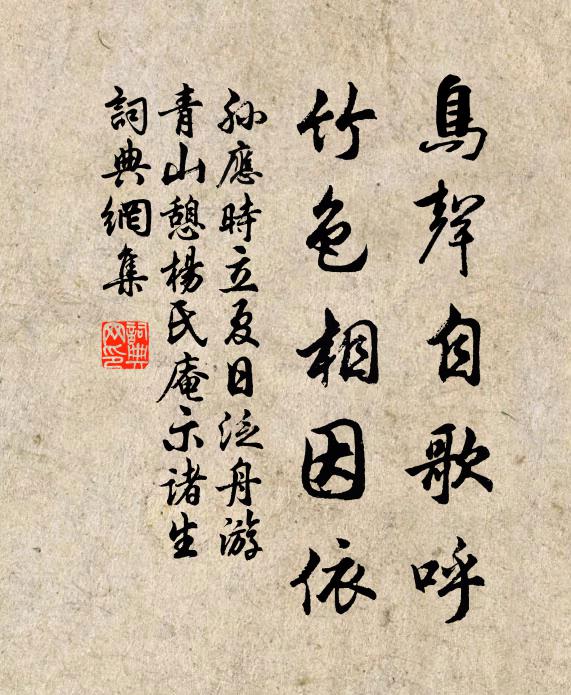 鳥聲自歌呼
竹色相因依
孫應時立夏日泛舟游
青山憩楊氏庵示諸生
詞典網集
詞典网印